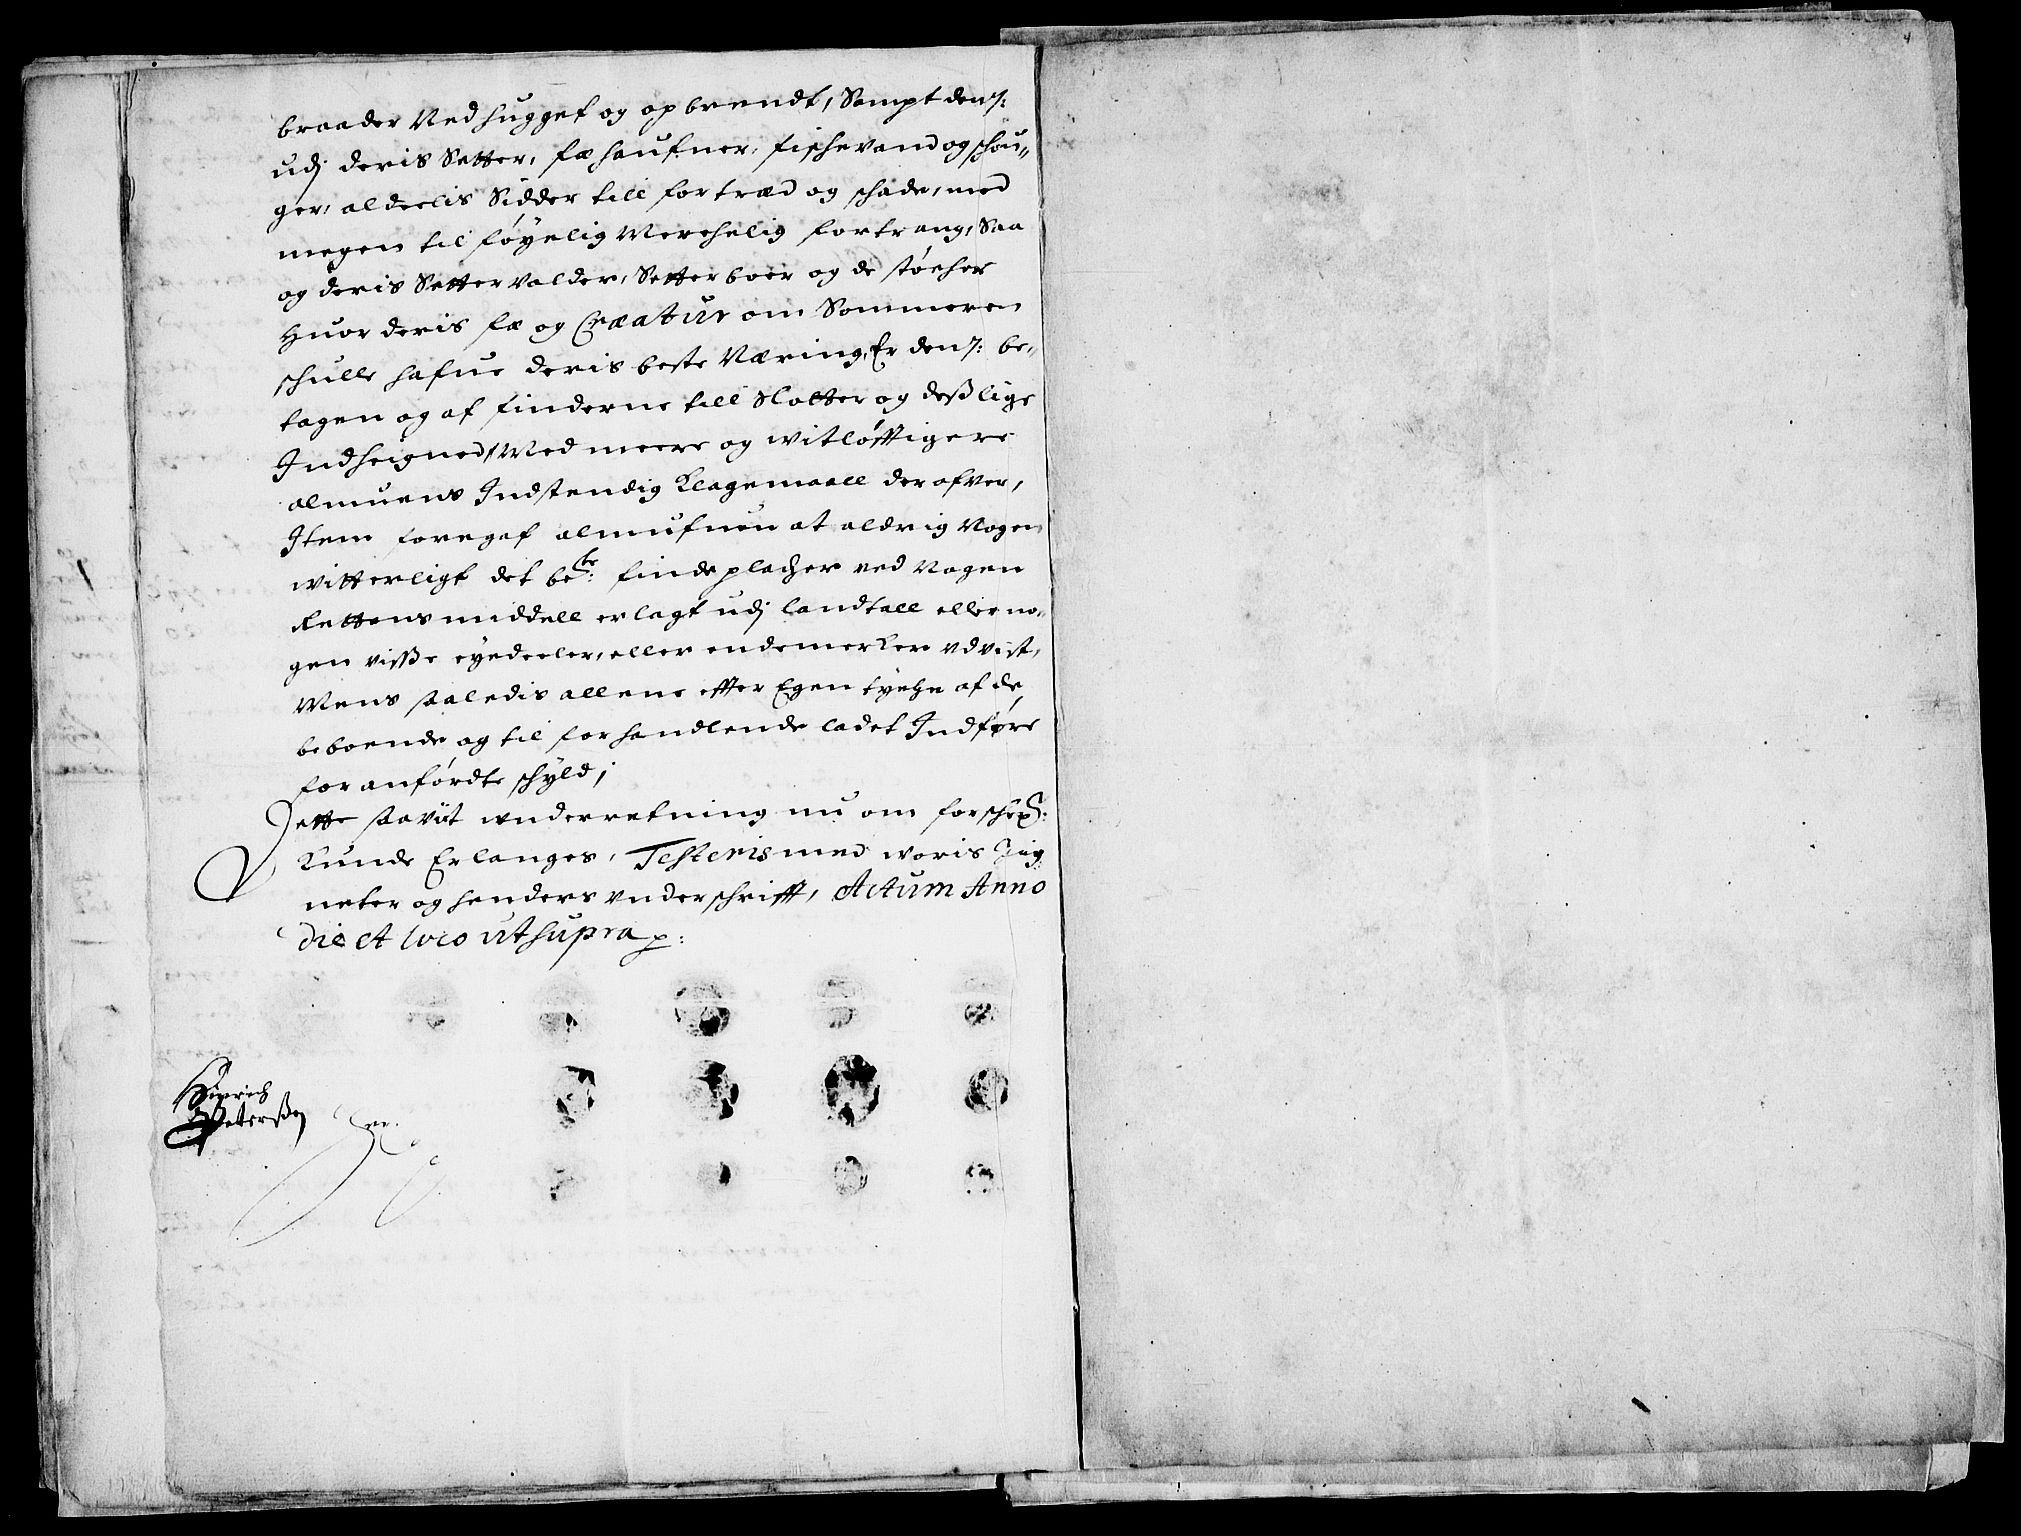 braader Ved hugget og op brendt, Sampt dennem:
udj deris Setter, fæ haufner, fischevand og schou„
ger, aldeelis Sidder till fortræd og schade, med
megen til føyelig Merchelig fortrang, Saa
og deris Setter volder, Setterboer og de støcher
Huor deris fæ og Creatur om Sommeren
schulle hafue deris beste Næring, Er dennem: be„
tagen og af finderne till Slotter og deßlige
Indheigned, Med meere og witløfftigere
almuens Indstendig Klagemaall derofver,
Item foregaf almufuen at aldrig Nogen
witterligt det be:te finde placher ved Nogen
Rettens middell erlagt udj landtall eller no„
gen viße eyedeeler, eller endemercker vdvist,
Mens saaledis allene effter Egen tyche af de
beboende og til forhandlende ladet Indføre
for anførdte schyld;
Dette saavit underretning nu om forsch:
Kunde Erlanges, Testeris med woris Zig
neter og henders vnderschrifft, Actum Anno
die et loco ut supra p:
Hinrich
Peterßen